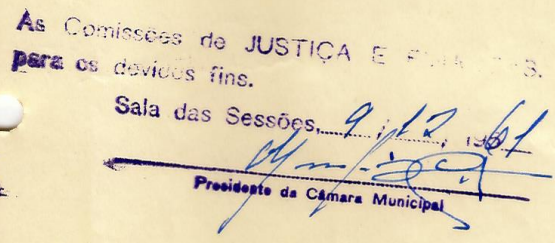 As Comissões de JUSTIÇA E
para os devidos fins.
Sala das Sessões, 9 / 12 / 1961
Presidente da Câmara Municipal